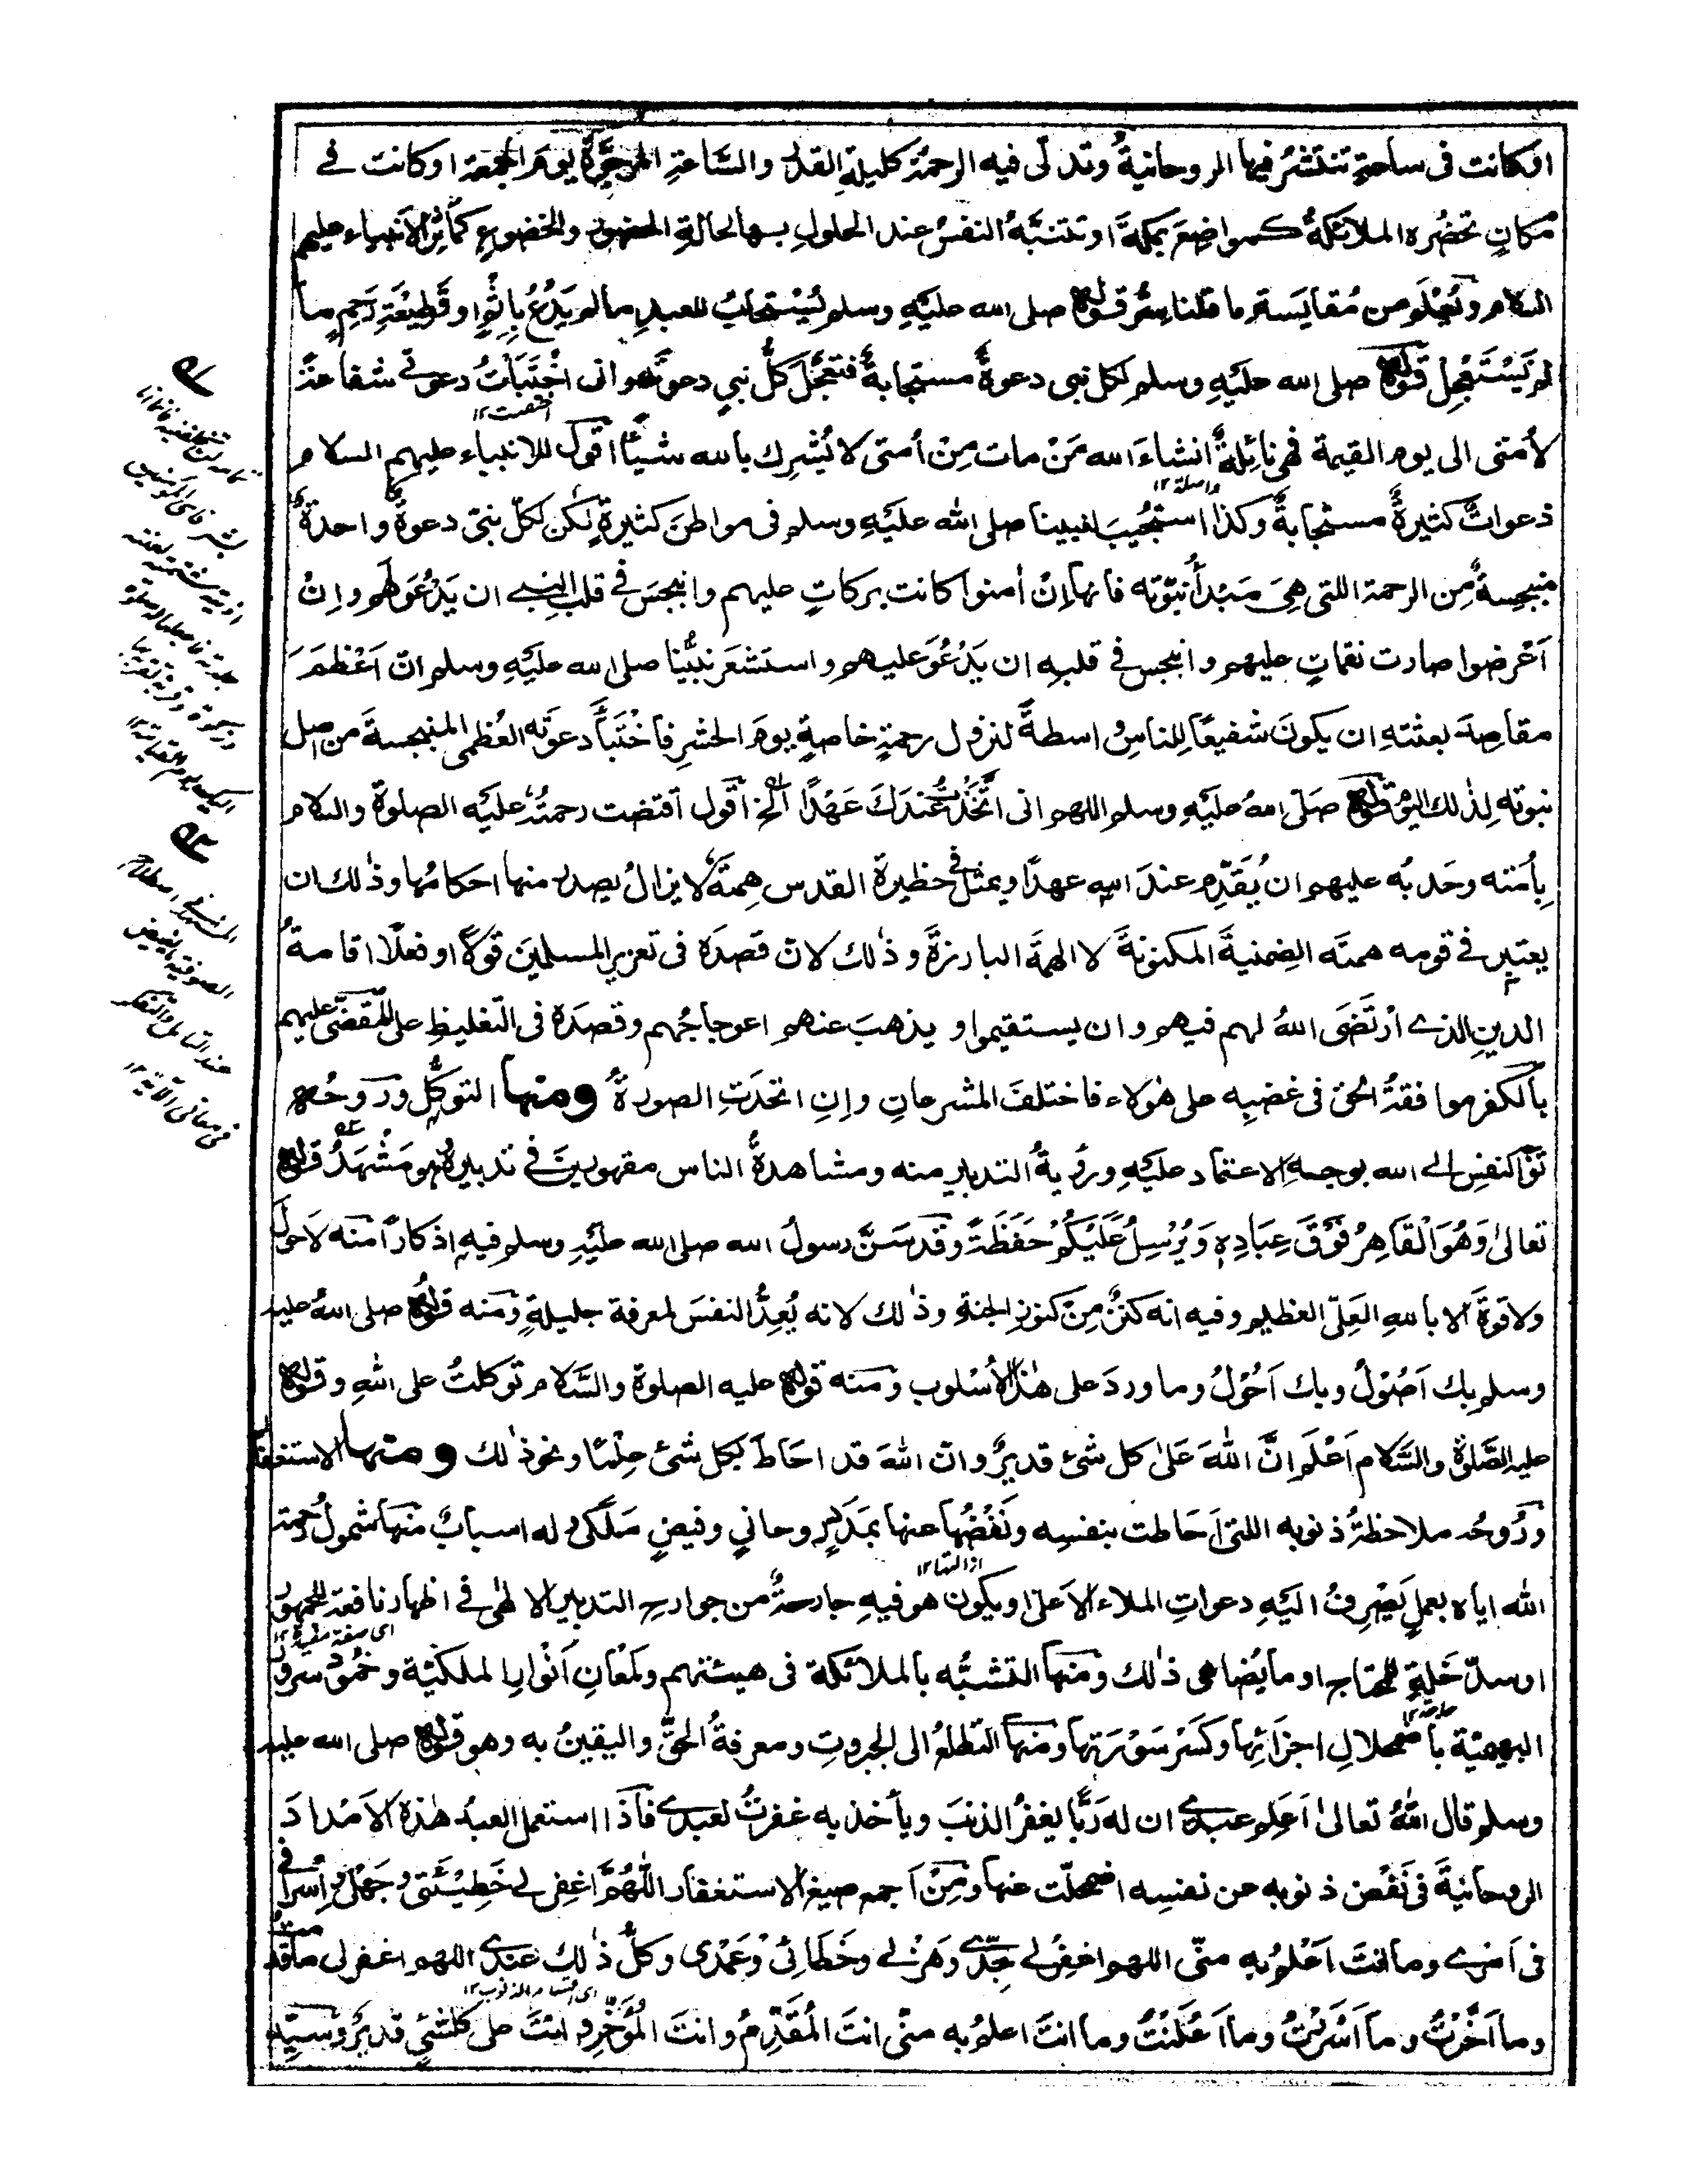 او كانت فى ساحةٍ تنتشرُ فيها الروحانيةُ وتدلى فيه الرحمةُ كليلةِ القدر والسَّاعةِ المرجوَّةِ يومَ الجمعة او كانت فے
مكانٍ تحضُره الملائكةُ كمواضِعَ بمكةَ او تتنبَّهُ النفسُ عند الحلولِ بها لحالةِ الحضور والخضوعِ كمآثرِ الانبياء عليهم
السلام ويُعلَم من مُقايَسة ما قلنا سِرُّ قولِه صلى الله عليَهِ وسلم يُسْتجابُ للعبدِ ما لم يَدْعُ بِاِثْمٍ او قَطِيْعَةِ رَحِمٍ ما
لم يَسْتَعْجِلْ قولُه صلى الله عليَهِ وسلم لكل نبى دعوةٌ مستجابةٌ فتعجَّلَ كلُّ نبيٍ دعوتَه وانى اخْتَبَاْتُ دعوتى شفاعةً
لأمتى الى يوم القيمة فهى نائِلةٌ انشاءَ الله مَنْ مات مِنْ اُمتى لا يُشرِك بالله شيئًا اقول للانبياء عليهم السلام
دعواتٌ كثيرةٌ مستجابةٌ وكذا استُجِيْبَ لنبينا صلى الله عليَهِ وسلم فى مواطنَ كثيرةٍ لكن لكلّ نبىّ دعوةٌ واحدةٌ
منبجسةٌ مِن الرحمة اللتى هِىَ مَبْدَأُ نبوّته فانها اِنْ اٰمنوا كانت بركاتٍ عليهم وانبجَسَ فے قلب النبے ان يَدْعُوَ لَهم واِنْ
اَعْرضوا صارت نقماتٍ عليهم وانبجس فے قلبِه ان يَدْعُوَ عليهم واستشعَرَ نبيُّنا صلى الله عليَهِ وسلم انّ اَعْظَمَ
مقاصِدِ بعثتِه ان يكونَ شفيعًا لِلناسِ واسطةً لنزول رحمةٍ خاصةٍ يومَ الحشرِ فاخْتَبَأَ دعوتَه العُظمى المنبجسةَ من اصل
نبوته لِذٰلك اليومِ قولُه صَلّى الله عليَهِ وسلم اللهم انى اتَّخَذْتُ عِنْدَكَ عَهْدًا الخ اقول اقتضت رحمتُه عليَهِ الصلوة والسلام
بِأمته وحَدبُه عليهم ان يُقَدِّم عندَ اللهِ عهدًا ويمثلَ فے حظيرة القدس هِمةً لا يزالُ يصدر منها احكامُها وذٰلك ان
يعتبر فے قومه همتَه الضِمنيةَ المكنونةَ لا الهمةَ البارزةَ وذٰلك لانّ قصدَه فى تعزير المسلمين قولًا او فعلًا اقامةُ
الدينِ الذے ارْتَضَى اللهُ لهم فيهم وان يستقيموا ويذهبَ عنهم اعوجاجُهم وقصدَه فى التغليظِ على المقضىّ عليهم
بالكفر موافقةُ الحق فى غضبِه على هٰولاء فاختلفَ المشرعانِ واِنِ اتحدَتِ الصورةُ ومنها التوكلُ وروحُه
توجّهُ النفسِ الے الله بوجهِ الاعتماد عليَهِ ورُؤيةُ التدبير منه ومشاهدةُ الناس مقهورين فے تدبيره وهو مَشْهَدُ قولِه
تعالىٰ وَهُوَ الْقَاهِرُ فَوْقَ عِبَادِهٖ وَيُرْسِلُ عَلَيْكُمْ حَفَظَةً وقد سَنَّ رسولُ الله صلى الله عليَهِ وسلم فيهِ اذكارًا منه لَا حولَ
ولا قوةَ الا باللهِ العَلِىّ العظيم وفيه انه كنزٌ مِنَ كنوزِ الجنةِ وذٰلك لانه يُعِدُّ النفسَ لمعرفة جليلةٍ ومنه قولُه صلى اللهُ عليه
وسلم بك اَصُوْلُ وبك اَحُوْلُ وما وردَ على هٰذا الاُسْلوب ومنه قولُه عليه الصلوة والسَّلام توكلتُ على اللهِ وقولُه
عليه الصَّلوة والسَّلام اَعْلَم انَّ اللهَ عَلىٰ كل شئ قديرٌ وانّ اللهَ قد احَاطَ بكل شئ عِلْمًا ونحو ذٰلك ومنها الاستغفار
ورُوحُه ملاحظةُ ذنوبه اللتى اَحَاطت بنفسِه ونَفْضُها عنها بمَدَدٍ روحانيٍ وفيضٍ مَلَكى وله اسبابٌ منها شمولُ رحمة
ازالتها ١٢
الله اياه بعملٍ يَصْرِفُ اليَهِ دعواتِ الملاء الاَعلٰى او يكون هو فيهِ جارحةً من جوارحِ التدبير الالٰهى فے اظهار نافعة للجمهور
اى صفة مفيدة ١٢
او سدّ خَلةٍ للمحتاج او ما يُضاهى ذٰلك ومنها التشبُّه بالملائكة فى هيئتهم ولَمعانِ اَنْوارِ الملكيّة وخمُودِ شرورِ
البهيميّة باضمحلالِ اجزائِها وكَسْرِ سَوْرَتِها ومنها التطلعُ الى الجبروتِ ومعرفةُ الحقّ واليقينُ به وهو قولُه صلى الله عليه
وسلم قال اللهُ تعالىٰ اَعَلِم عبدے ان له رَبًّا يغفرُ الذنبَ ويأخذ به غفرتُ لعبدے فاذا استعمل العبدُ هٰذه الاَمْدادَ
الروحانيةَ فى نَفْضِ ذنوبِه عن نفسِه اضمحلّت عنها ومِنْ اَجمع صيغِ الاستغفار اللّٰهُمَّ اغفِر لے خَطِيْئَتى وجَهْلى واِسرافے
فى اَمْرے وما انتَ اَعْلمُ به منّى اللهم اغفِرْ لے جِدّے وهَزْلے وخَطَائِىْ وعَمْدى وكلُّ ذٰلك عندے اللهم اغفر لى ما قدمتُ
اى اقسام الذنوب ١٢
وما اَخَّرْتُ وما اَسْرَرْتُ وما اَعْلَنْتُ وما انتَ اعلمُ به منّى انتَ المُقَدِّمُ وانتَ المُؤخِّرُ وانتَ على كل شئٍ قديرٌ وسيّد